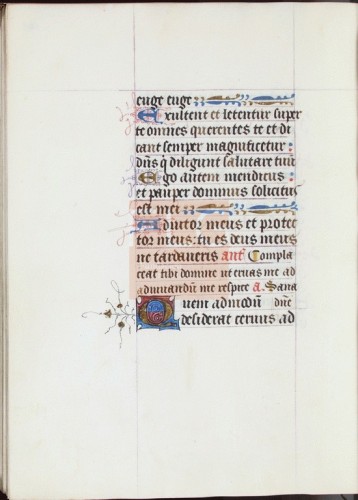 euge euge
Exultent et letentur super
te omnes querentes te et di
cant semper magnificetur
dñs q̇ diligunt salutare tuū
Ego autem mendicus
et pauper dominus solicitus
est mei
Adiutor meus et protec
tor meus: tu es deus meus
ne tardaveris añ Compla
ceat tibi domine ut eruas me ad
adiuvandū me respice a. Sana
Quem admodū dñe
desiderat cervus ad